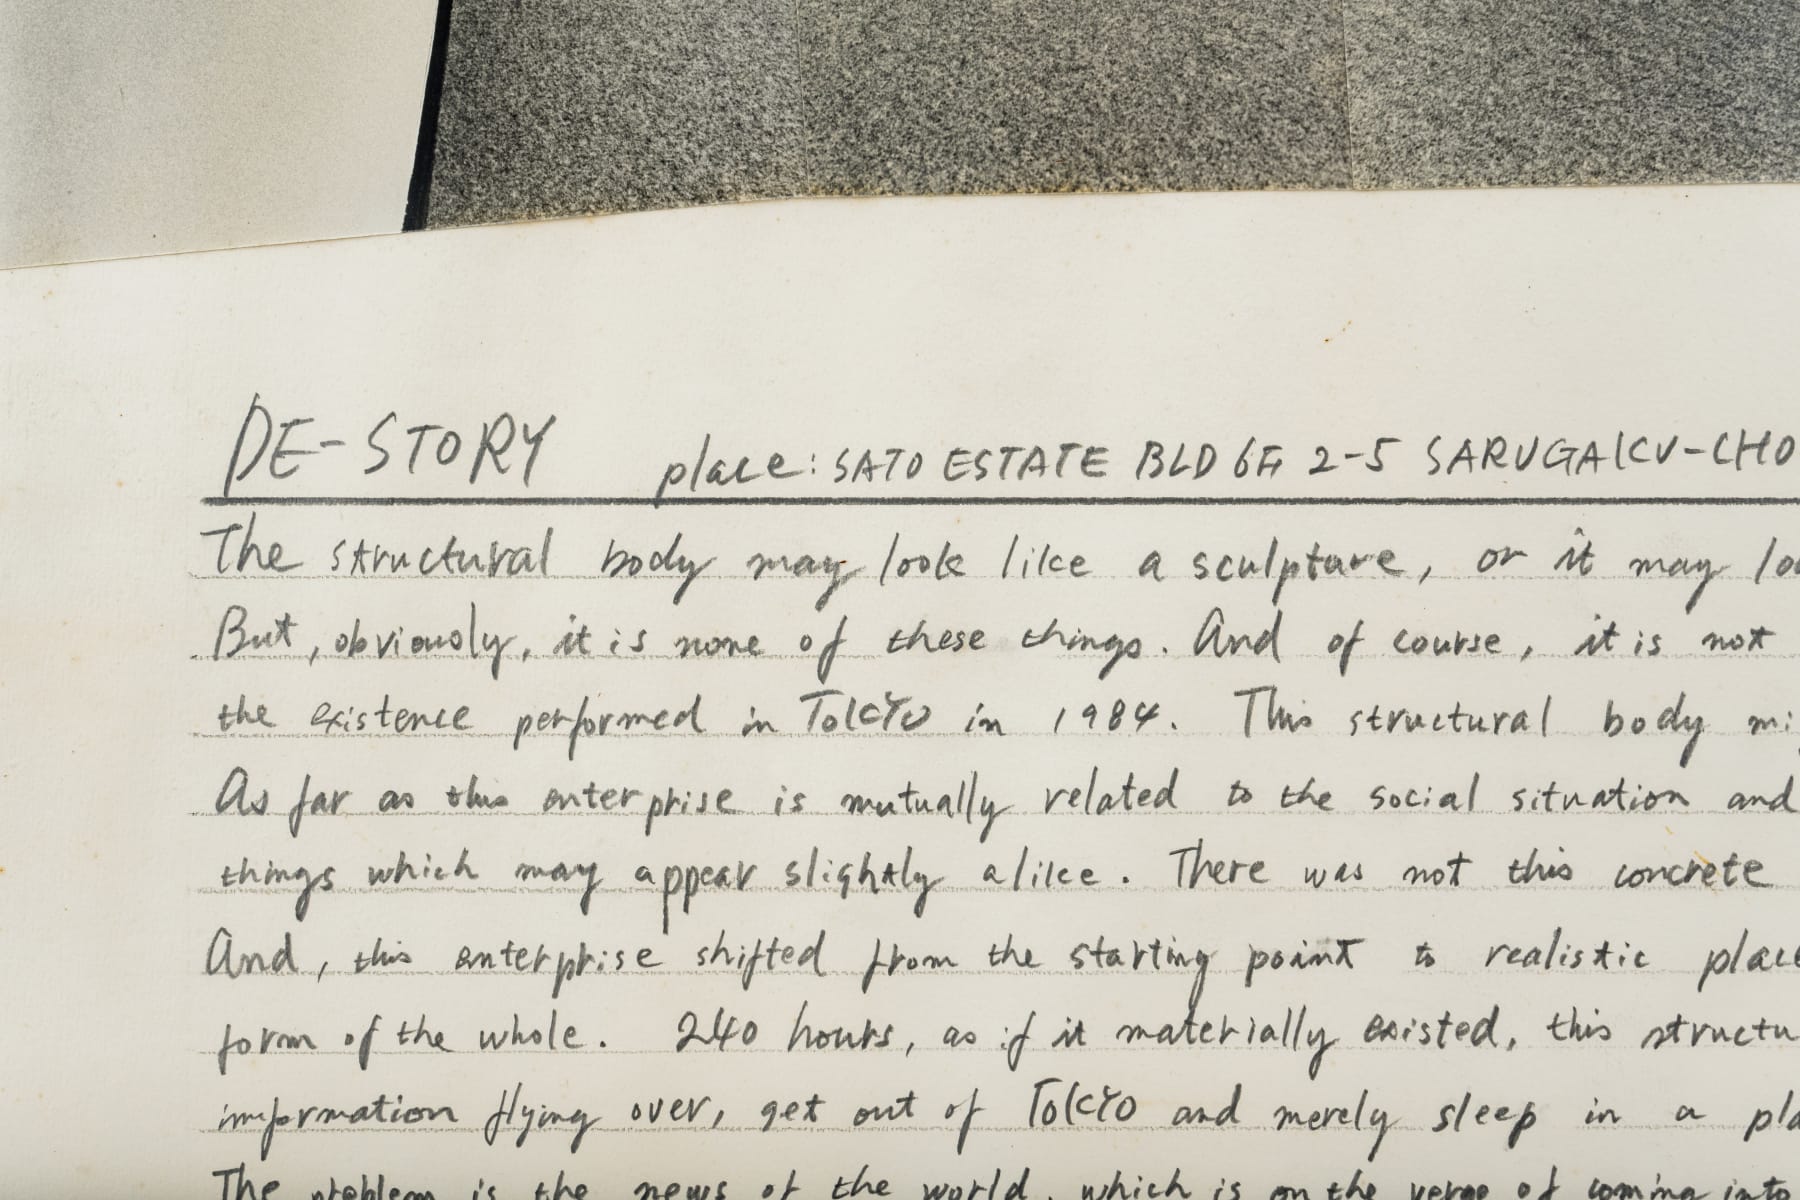 DE-STORY place: SATO ESTATE BLD 6F 2-5 SARUGAKU-CHO
The structural body may look like a sculpture, or it may
But, obviously, it is none of these things. And of course, it is not
the existence performed in TOKYO in 1984. This structural body
As far as this enterprise is mutually related to the social situation and
things which may appear slightly alike. There was not this concrete
And, this enterprise shifted from the starting point to realistic
form of the whole. 240 hours, as if it materially existed, this
information flying over, get out of TOKYO and merely sleep in a
The problem is the news of the world, which is on the verge of coming into